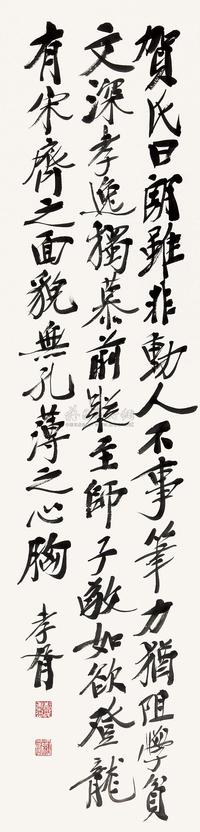 賀氏曰朗雖非動人不事筆力猶阻學貧
文深孝逸獨慕前蹤至師子敬如欲登龍
有宋齊之面貌無孔薄之心胸
孝胥